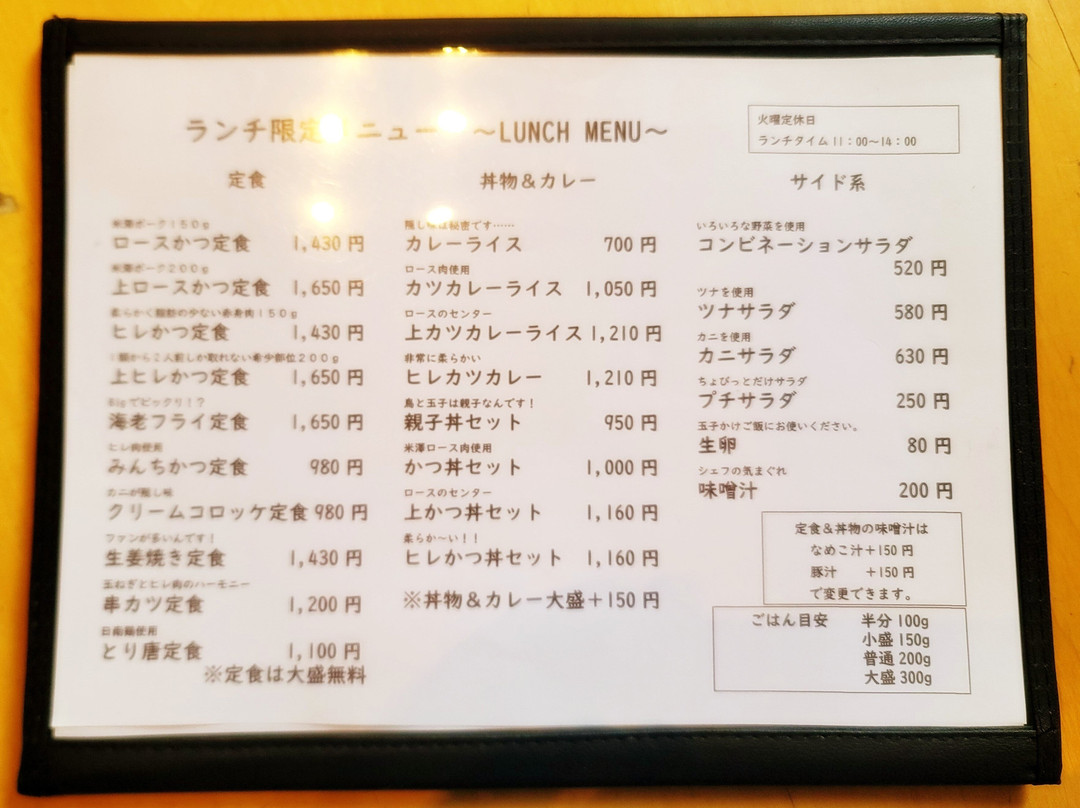 ランチ限定 ニュー ～LUNCH MENU～
火曜定休日
ランチタイム 11：00～14：00
定食
米澤ポーク150g
ロースかつ定食 1,430 円
米澤ポーク200g
上ロースかつ定食 1,650 円
柔らかく脂肪の少ない赤身肉150g
ヒレかつ定食 1,430 円
1頭から2人前しか取れない希少部位200g
上ヒレかつ定食 1,650 円
Bigでビックリ！？
海老フライ定食 1,650 円
ヒレ肉使用
みんちかつ定食 980 円
カニが隠し味
クリームコロッケ定食 980 円
ファンが多いんです！
生姜焼き定食 1,430 円
玉ねぎとヒレ肉のハーモニー
串カツ定食 1,200 円
日南鶏使用
とり唐定食 1,100 円
※定食は大盛無料
丼物＆カレー
隠し味は秘密です……
カレーライス 700 円
ロース肉使用
カツカレーライス 1,050 円
ロースのセンター
上カツカレーライス 1,210 円
非常に柔らかい
ヒレカツカレー 1,210 円
鳥と玉子は親子なんです！
親子丼セット 950 円
米澤ロース肉使用
かつ丼セット 1,000 円
ロースのセンター
上かつ丼セット 1,160 円
柔らか～い！！
ヒレかつ丼セット 1,160 円
※丼物＆カレー大盛＋150 円
サイド系
いろいろな野菜を使用
コンビネーションサラダ
520 円
ツナを使用
ツナサラダ 580 円
カニを使用
カニサラダ 630 円
ちょびっとだけサラダ
プチサラダ 250 円
玉子かけご飯にお使いください。
生卵 80 円
シェフの気まぐれ
味噌汁 200 円
定食＆丼物の味噌汁は
なめこ汁＋150 円
豚汁 ＋150 円
で変更できます。
ごはん目安 半分 100g
小盛 150g
普通 200g
大盛 300g